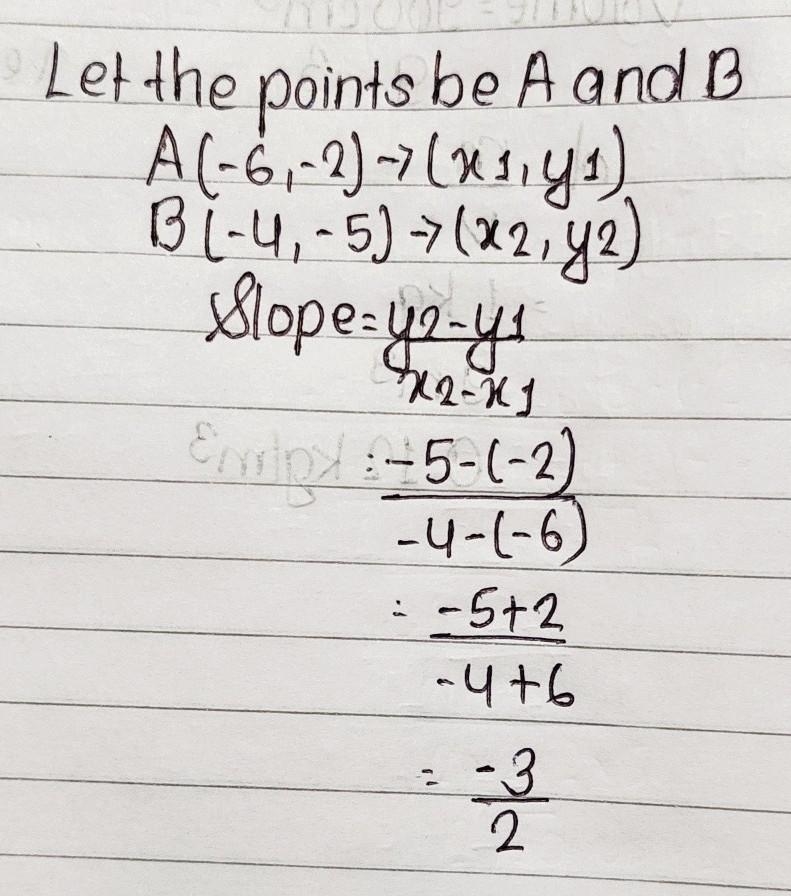 Let the points be A and B
A(-6,-2)→(x1,y1)
B(-4,-5)→(x2,y2)
Slope=y2-y1
x2-x1
=-5-(-2)
-4-(-6)
= -5+2
-4+6
= -3
2